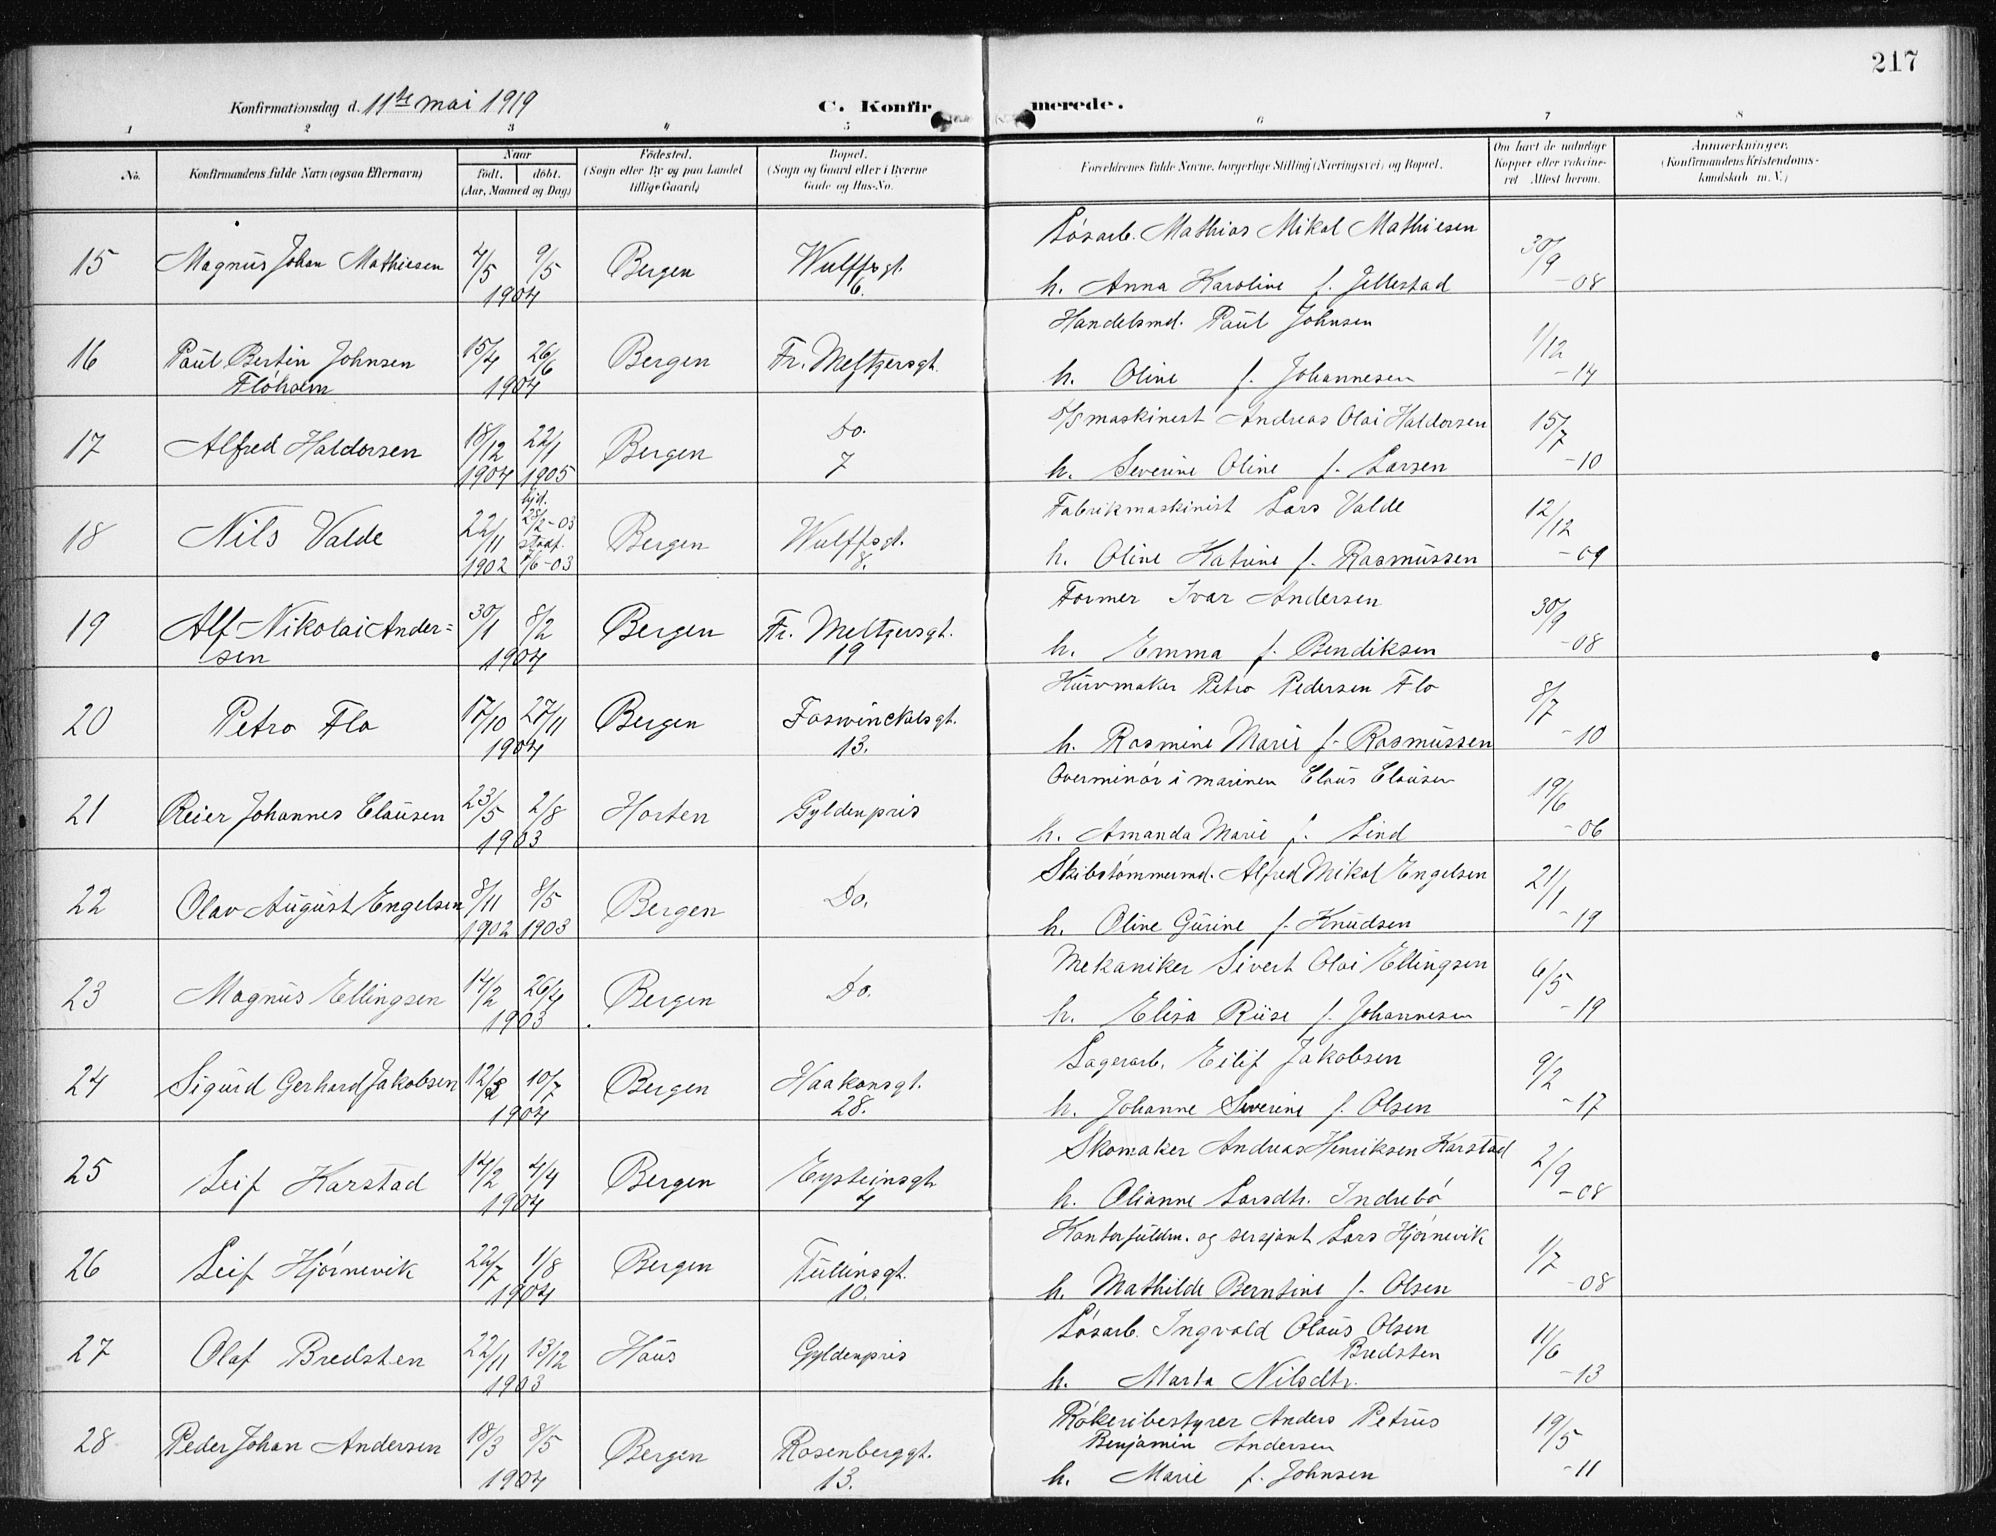 217
Konfirmationsdag d. 11te mai 1919 C. Konfir merede.
1 2 3 4 5 6 7 8
No. Konfirmandens fulde Navn (ogsaa Efternavn) Naar født. døbt. (Aar, Maaned og Dag) Fødested. (Sogn eller By og paa Landet tillige Gaard) Bopæl. (Sogn og Gaard eller i Byerne Gade og Hus-No. Forældrenes fulde Navne, borgerlige Stilling (Næringsvei) og Bopæl. Om havt de naturlige Kopper eller vaccineret Attest herom. Anmærkninger. (Konfirmandens Kristendomskundskab m. V.)
15 Magnus Johan Mathiesen 4/5 9/5 1904 Bergen Wulffsgt. 6. Løsarb. Mathias Mikal Mathiesen
h. Anna Karoline f. Jellestad 30/9 -08
16 Paul Bertin Johnsen Flóhsem 15/4 26/6 1904 Bergen Fr. Meltzersgt. Handelsmd. Paul Johnsen
h. Oline f. Johannesen 1/12 -14
17 Alfred Haldorsen 18/12 1904 22/1 1905 Bergen Do. 7 D/S maskinist Andreas Olai Haldorsen
h. Severine Oline f. Larsen 15/7 -10
18 Nils Valde 22/11 1902 hjd. 28/2-03 stadf. 1/6-03 Bergen Wulffsgt. 8. Fabrikmaskinist Lars Valde
h. Oline Katrine f. Rasmussen 12/12 -09
19 Alf Nikolai Ander=
sen 30/1 8/2 1904 Bergen Fr. Meltzersgt. 19 Former Ivar Andersen
h. Emma f. Bendiksen 30/9 -08
20 Petro Flo 17/10 27/11 1904 Bergen Foswinckelsgt. 13. Kurvmaker Petro Pedersen Flo
h. Rasmine Marie f. Rasmussen 8/7 -10
21 Reier Johannes Clausen 23/5 2/8 1903 Horten Gyldenpris Overminør i marinen Claus Clausen
h. Amanda Marie f. Lind 19/6 -06
22 Olav August Engelsen 8/11 1902 8/5 1903 Bergen Do. Skibstømmermd. Alfred Mikal Engelsen
h. Oline Gurine f. Knudsen 21/1 -19
23 Magnus Ellingsen 14/2 26/4 1903 Bergen Do. Mekaniker Sivert Olai Ellingsen
h. Elisa Riise f. Johannesen 6/5 -19
24 Sigurd Gerhard Jakobsen 12/3 10/7 1904 Bergen Haakonsgt. 28. Lagerarb. Eilif Jakobsen
h. Johanne Severine f. Olsen 9/2 -17
25 Leif Karstad 14/2 4/4 1904 Bergen Eysteinsgt. 4 Skomaker Andreas Henriksen Karstad
h. Olianne Larsdtr. Indrebø 2/9 -08
26 Leif Hjørnevik 22/7 1/8 1904 Bergen Tullinsgt. 10. Kontorfuldm. og sersjant Lars Hjørnevik
h. Mathilde Berntine f. Olsen 1/7 -08
27 Olaf Bredsten 22/11 13/12 1903 Haus Gyldenpris Løsarb. Ingvald Olaus Olsen Bredsten
h. Marta Nilsdtr. 11/6 -13
28 Peder Johan Andersen 18/3 8/5 1904 Bergen Rosenberggt. 13. Røkeribestyrer Anders Petrus
Benjamin Andersen
h. Marie f. Johnsen 19/5 -11